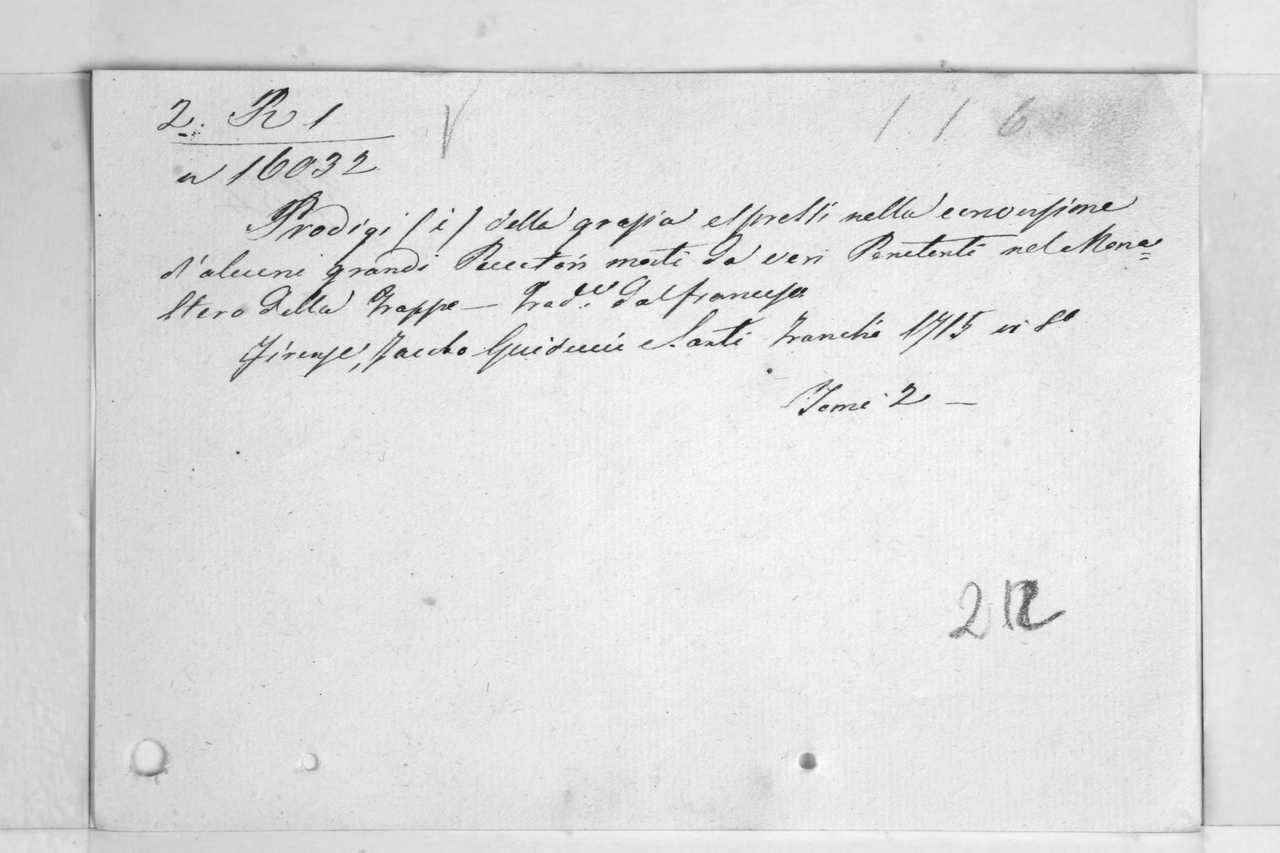 2. R 1
V
1 1 6
n 16032
Prodigi (i) della grazia espressi nella conversione
d'alcuni grandi Peccatori morti da veri Penitenti nel Mona=
stero della Trappe — Trad.e dal francese
Firenze, Jacobo Guiducci e Santi Franchi 1715 in 8o
Tome 2 —
2 R